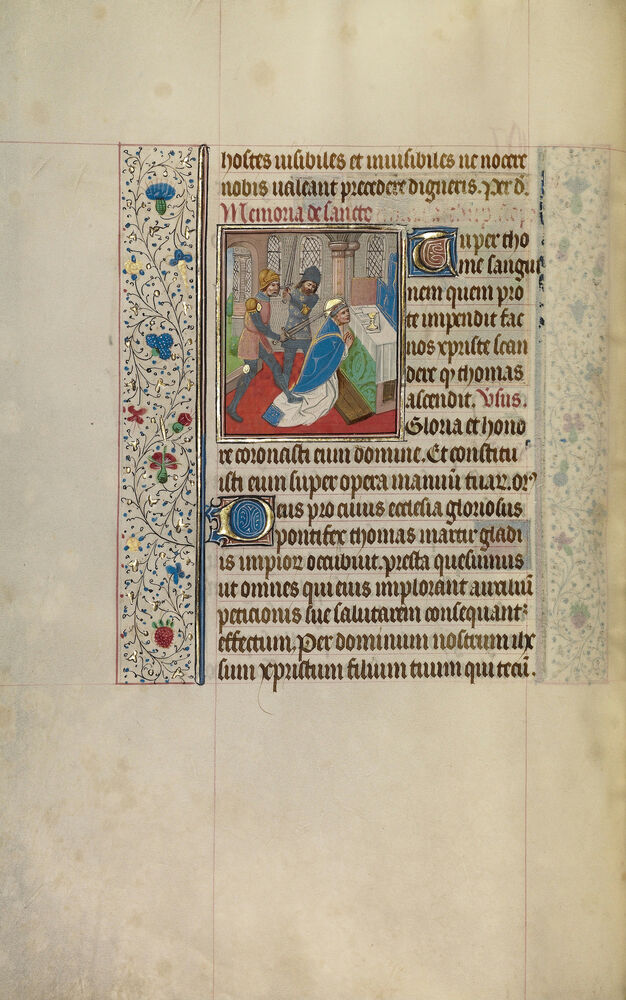 hostes uisibiles et inuisibiles ne nocere
nobis ualeant precedere digneris. Per d.
Memoria de sancto
Tu per tho
me sangui
nem quem pro
te impendit fac
nos xpriste scan
dere q̄ thomas
ascendit. Vsus.
Gloria et hono
re coronasti eum domine. Et constitu
isti eum super opera manuū tuaꝝ. or̄
Deus pro cuius ecclesia gloriosus
pontifex thomas martir gladi
is impioꝝ occubuit. presta quesumus
ut omnes qui eius implorant auxiliū
peticionis sue salutarem consequant᷑
effectum. Per dominum nostrum ihx
sum xpristum filium tuum qui tecū.